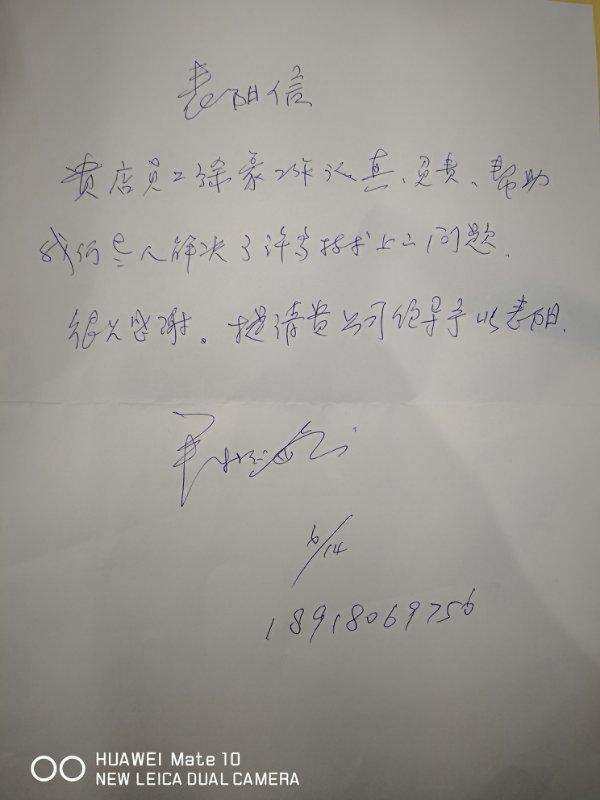 表阳信
贵店员工徐豪工作认真、负责、帮助
我们老人解决了许多技术上的问题.
很为感谢。提请贵公司领导予以表阳.
6/14
18918069756
HUAWEI Mate 10
NEW LEICA DUAL CAMERA